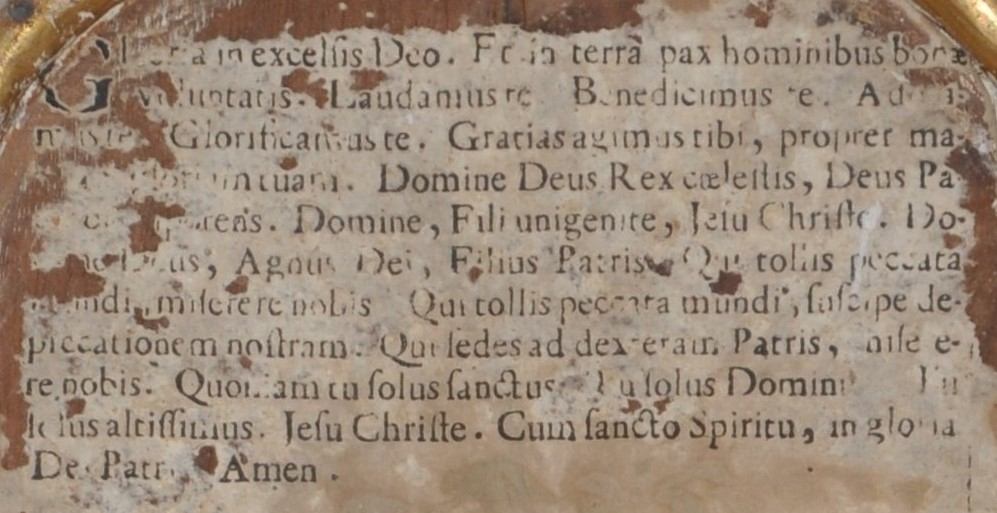 Gloria in excelsis Deo. Et in terra pax hominibus bonæ
voluntatis. Laudamus te Benedicimus te. Ado-
Glorificamus te. Gratias agimus tibi, propter ma-
tuam. Domine Deus Rex cælestis, Deus Pa-
Domine, Fili unigenite, Jesu Christe. Do-
Deus, Agnus Dei, Filius Patris. Qui tollis peccata
mundi, miserere nobis Qui tollis peccata mundi, suscipe de-
precationem nostram. Qui sedes ad dexteram Patris, mise e-
re nobis. Quoniam tu solus sanctus Tu solus Domin Tu
solus altissimus. Jesu Christe. Cum sancto Spiritu, in gloria
Dei Patris Amen.